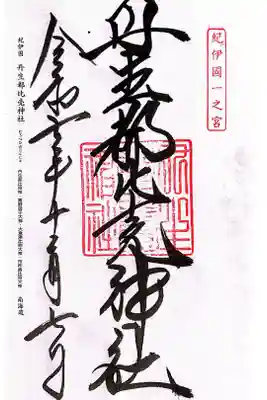 紀伊國一之宮
丹生都比売神社
令和二年十二月七日
紀伊国 丹生都比売神社
南海道